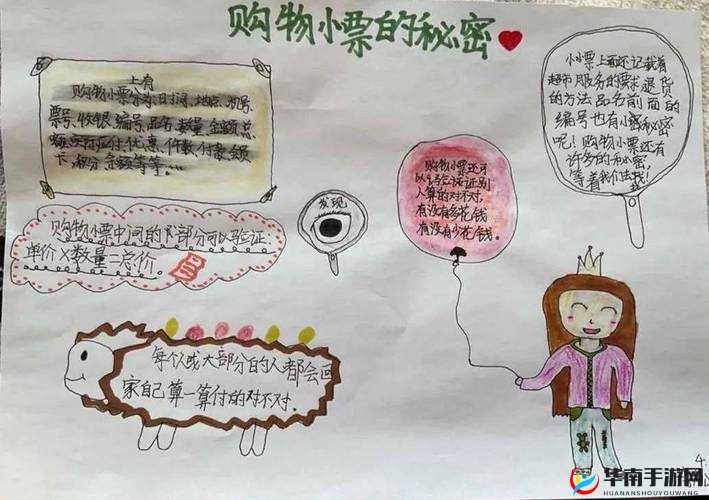 购物小票的秘密
上有
购物小票分为日时间、地点、机号、
票号、收银、编号、品名、数量、金额、总
额、实付、应付、优惠、件数、付款、金额
卡、积分、金额等等……
购物小票中间的下部分可以验证:
单价×数量=总价。
发现
每个人或大部分的人都会回
家自己算一算付的对不对.
购物小票还可
以验证
人算的对不对,
有没有多花钱
有没有少花钱。
小票上面还记载着
超市服务的要求退货
的方法品名前面的
编号也有小秘密
呢!购物小票还有
许多的秘密,
等着我们去找!
4.
华南手游网
HUANANSHOUYOUWANG